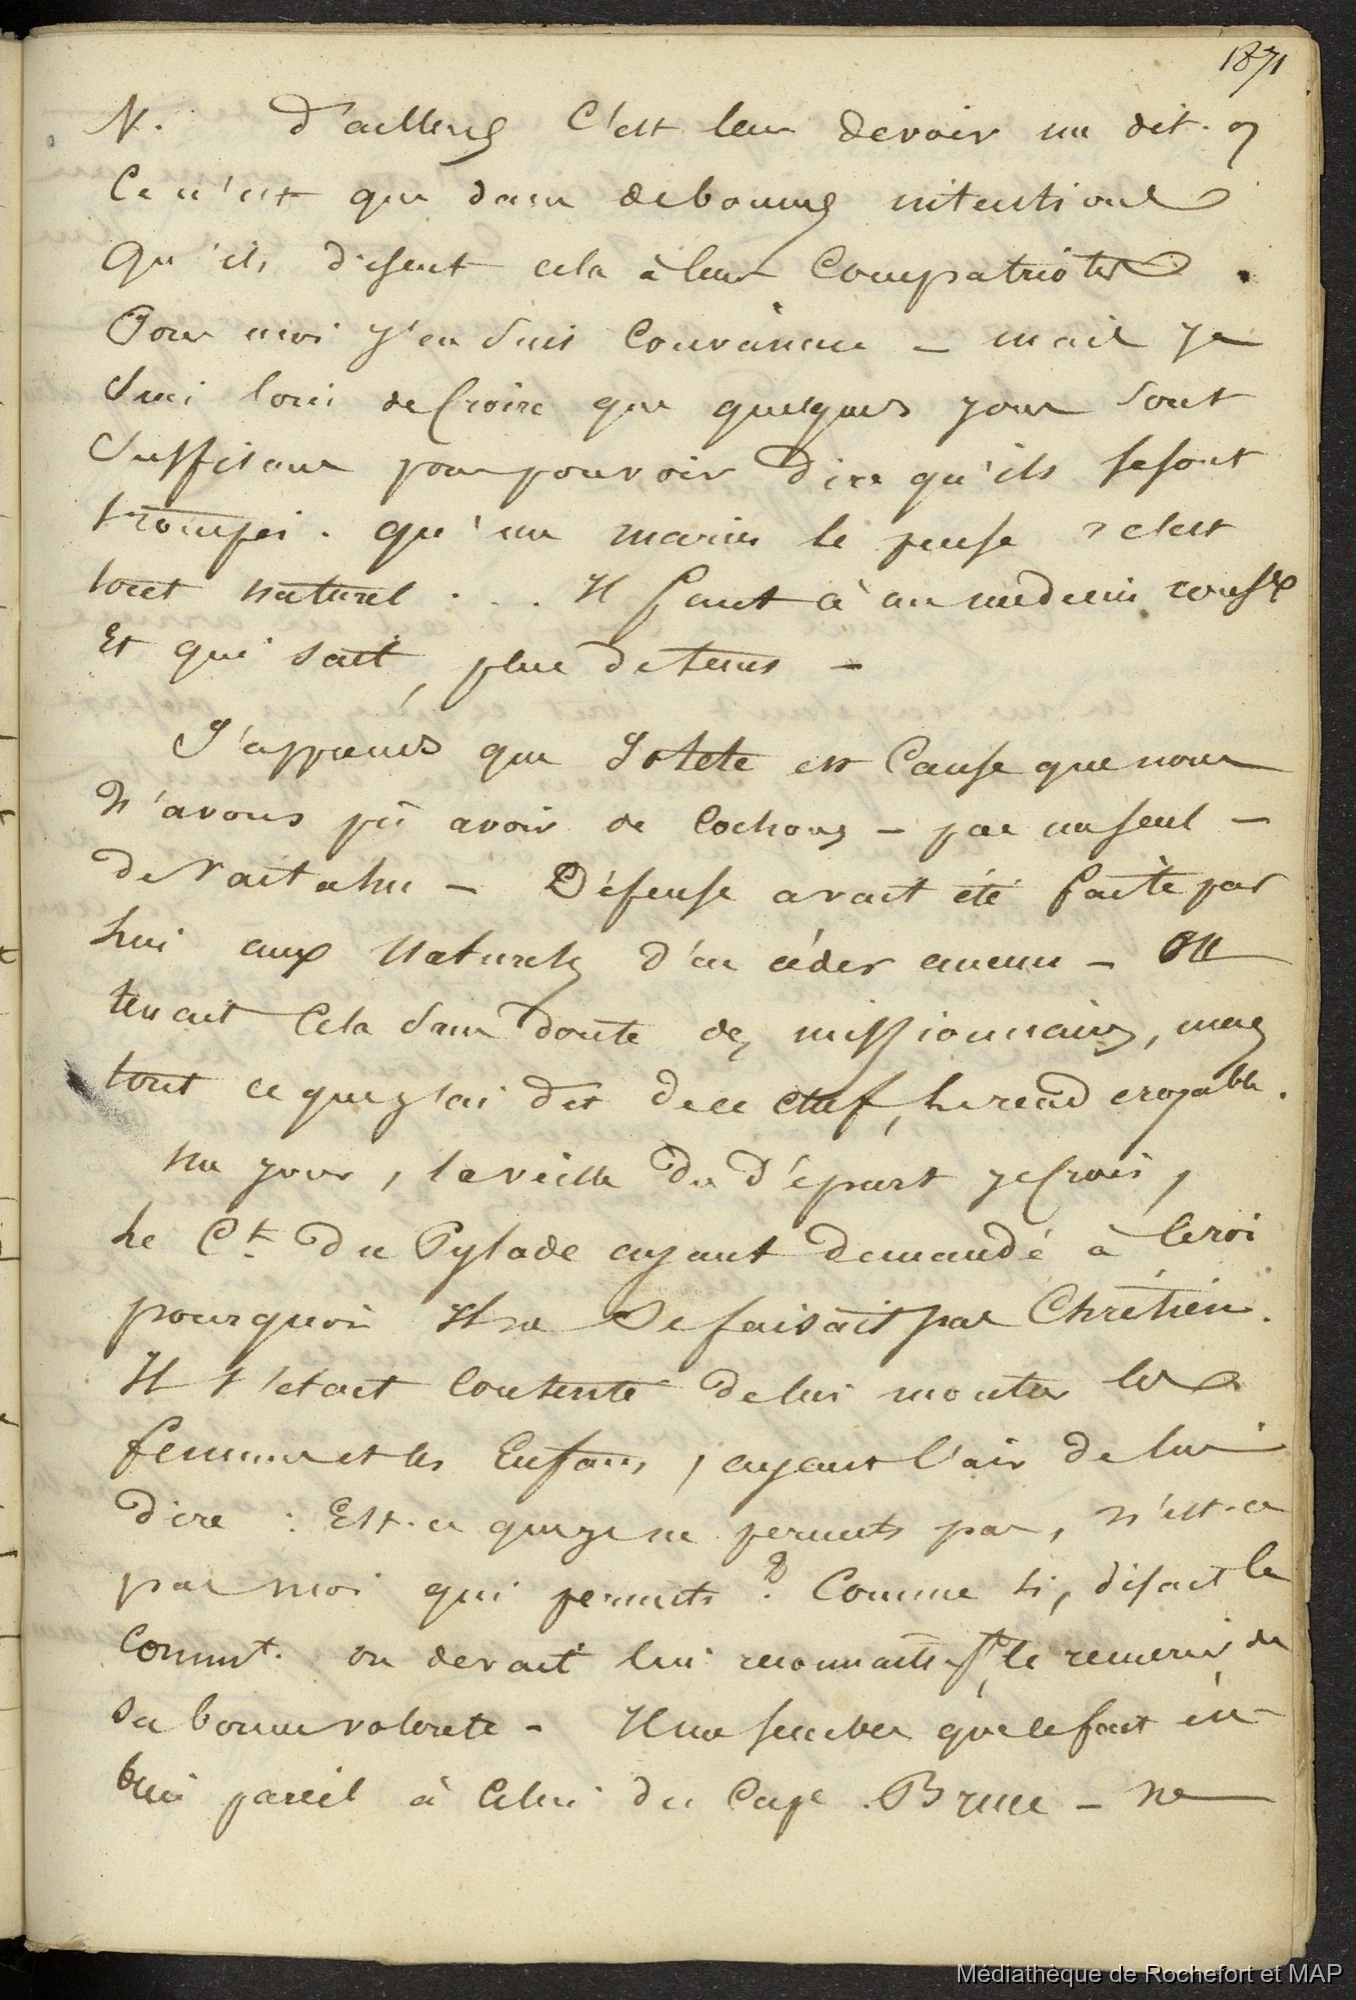 1871
N. d'ailleurs C'est leur devoir un dit. &
Ce n'est que dans de bonnes intentions
Qu'ils disent cela à leurs Compatriotes.
Pour moi j'en suis Convaincu – mais je
Suis loin de Croire que quelques jours sont
Suffisans pour pouvoir dire qu'ils se sont
trompés. qu'un marin le pense, c'est
tout naturel ... Il faut à un médecin
Et qui sait, plus de tems –
J'apprends que Iotete est Cause que nous
N'avons pû avoir de Cochons – pas un seul –
de Vaitahu – Défense avait été faite par
lui aux Naturels d'en céder aucun – On
tenait Cela sans doute des missionnaires, mais
tout ce que j'ai dit de ce chef, le rend croyable.
Un jour, la veille du Départ je Crois,
Le Ct. Du Pylade ayant demandé à le roi
pourquoi Il ne Se faisait pas Chrétien.
Il s'était Contenté de lui montrer les
femmes et les Enfans, ayant l'air de lui
dire : Est-ce que je ne permets pas, N'est-ce
pas moi qui permets ? Comme si, disait le
Commt. on devait lui reconnaitre & le remercier de
sa bonne volonté – Il me semble que le fait en
lui pareil à Celui du Cap. Bruce – ne
Médiathèque de Rochefort et MAP